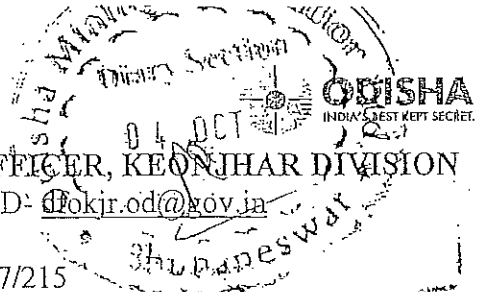 Diary Section
ODISHA
INDIA'S BEST KEPT SECRET
04 OCT
OFFICER, KEONJHAR DIVISION
D- dfokjr.od@gov.in
Bhubaneswar
7/215